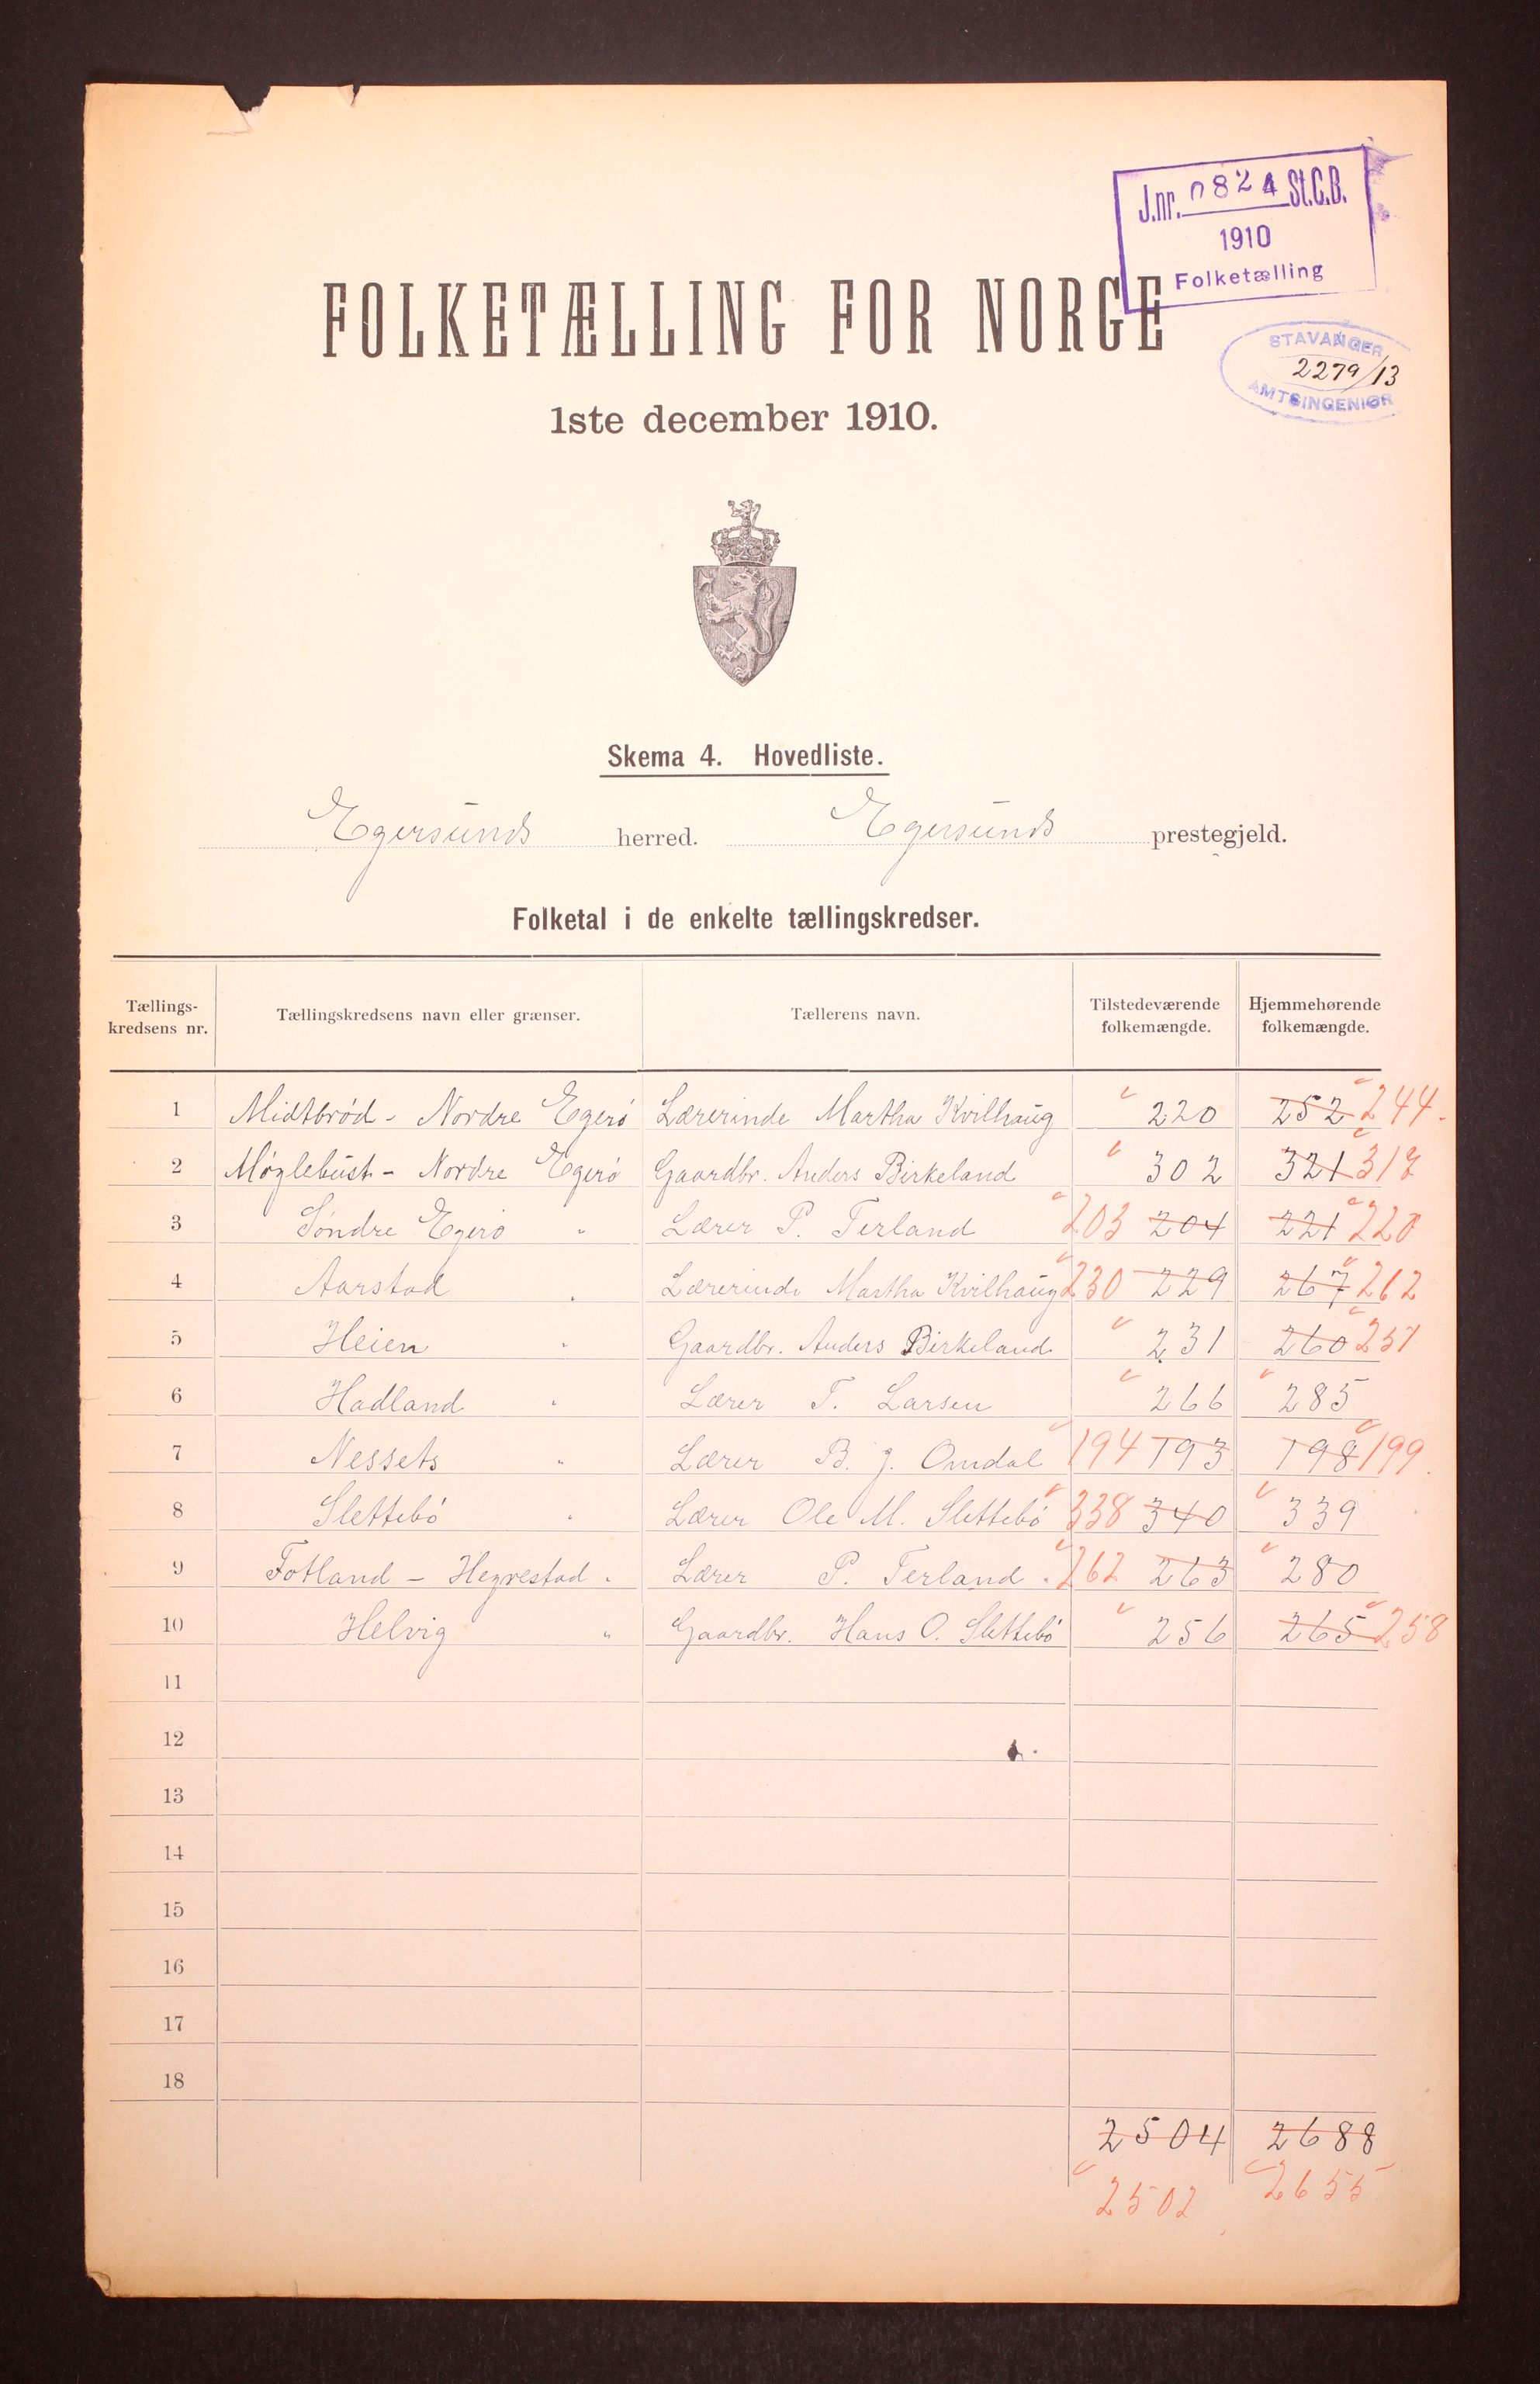 J.nr. 0824 St.C.B.
1910
Folketælling
FOLKETÆLLING FOR NORGE
STAVANGER
2279/13
AMTSINGENIØR
1ste december 1910.
Skema 4. Hovedliste.
Egersunds herred. Egersunds prestegjeld.
Folketal i de enkelte tællingskredser.
Tællings-kredsens nr. Tællingskredsens navn eller grænser. Tællerens navn. Tilstedeværende folkemængde. Hjemmehørende folkemængde.
1 Midtbrød - Nordre Egerö Lærerinde Martha Kvilhaug 220 252 244
2 Møglebust - Nordre Egerö Gaardbr. Anders Birkeland 302 321 317
3 Söndre Egerö " Lærer P. Terland 203 204 221 220
4 Aarstad " Lærerinde Martha Kvilhaug 230 229 267 262
5 Heien " Gaardbr. Anders Birkeland 231 260 251
6 Hadland " Lærer T. Larsen 266 285
7 Nessets " Lærer B. J. Omdal 194 193 198 199
8 Slettebö " Lærer Ole M. Slettebö 338 340 339
9 Fotland - Hegrestad " Lærer P. Terland 262 263 280
10 Helvig " Gaardbr. Hans O. Slettebö 256 265 258
11
12
13
14
15
16
17
18
2504 2688
2502 2655